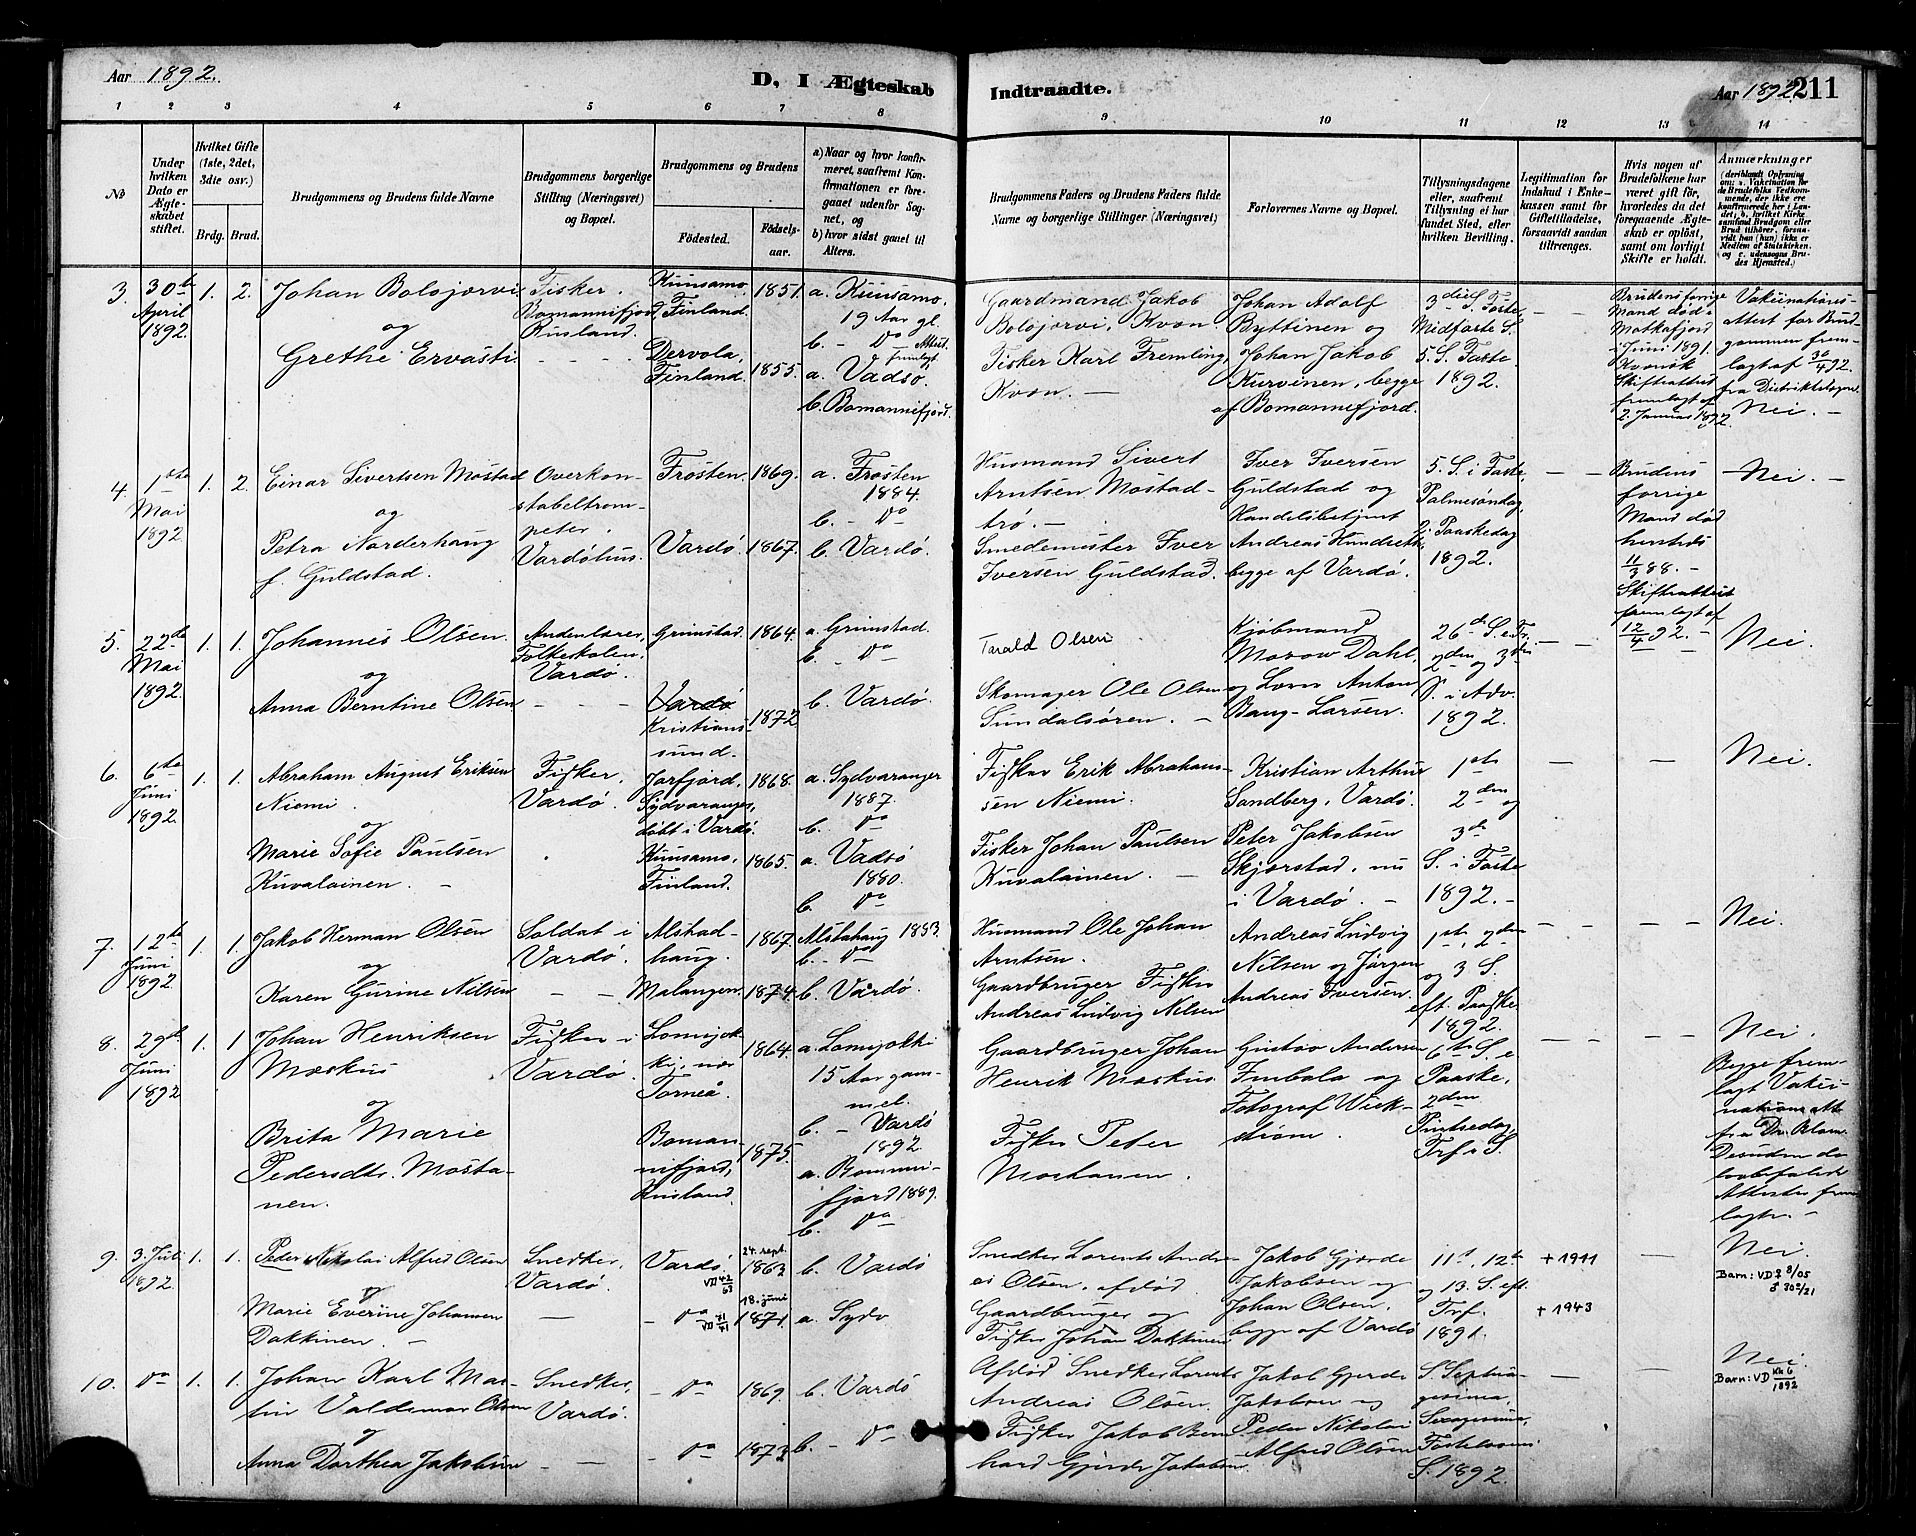 Aar 1892.
D, I Ægteskab
Indtraadte.
Aar 1892. 211
1 2 3 4 5 6 7 8 9 10 11 12 13 14
No
Under hvilken Dato er Ægteskabet stiftet.
Hvilket Gifte (1ste, 2det, 3die osv.)
Brdg. Brud.
Brudgommens og Brudens fulde Navne
Brudgommens borgerlige Stilling (Næringsvei) og Bopæl.
Brudgommens og Brudens
Fødested.
Fødselsaar.
a) Naar og hvor konfirmeret, saafremt Konfirmationen er foregaaet udenfor Sognet, og
b) hvor sidst gaaet til Alters.
Brudgommens Faders og Brudens Faders fulde Navne og borgerlige Stillinger (Næringsvei)
Forlovernes Navne og Bopæl.
Tillysningsdagene eller, saafremt Tillysning ei har fundet Sted, efter hvilken Bevilling.
Legitimation for Indskud i Enkekassen samt for Giftetilladelse, forsaavidt saadan tiltrænges.
Hvis nogen af Brudefolkene har været gift før, hvorledes da det foregaaende Ægteskab er opløst, samt om lovligt Skifte er holdt.
Anmærkninger (deriblandt Oplysning om: a. Vakcination for de Brudefolks Vedkommende, der ikke ere konfirmerede her i Landet; b. hvilket Kirkesamfund Brudgom eller Brud tilhører, forsaavidt han (hun) ikke er Medlem af Statskirken og c. udensogns Brudes Hjemsted.)
3. 30te April 1892. 1. 2.
Johan Bolojærvi
og
Grethe Ervasti
Fisker.
Bomannifjord,
Rusland.
Kuusamo,
Finland. 1851.
Dervola,
Finland. 1855.
a. Kuusamo.
19 Aar gl.
b. - Do Attest
fremlagt
a. Vadsø.
b. Bomannifjord.
Gaardmand Jakob
Bolojorvi, Kvæn.
Fisker Karl Fremling,
Kvæn. -
Johan Adolf
Byttinen og
Johan Jakob
Kurvinen, begge
af Bomannefjord.
3die S. Faste,
Midfaste S.
5. S. Faste
1892.
Brudens forrige
Mand død i
Motkafjord
i Juni 1891.
Kvensk
Skifteattest
fremlagt af
2. Januar 1892.
Vakcinations-
attest for Brud-
gommen frem-
lagt af 30/4 92.
fra Distriktslægen.
Nei. -
4. 1ste Mai 1892 1. 2.
Einar Sivertsen Mostad
og
Petra Norderhaug
f. Guldstad.
Overkon-
stabeltrom-
peter.
Vardøhus.
Frosten. 1869.
Vardø. 1867.
a. Frosten
1884.
b. - Do
b. Vardø.
Husmand Sivert
Arntsen Mostad-
trø. -
Smedemester Iver
Iversen Guldstad.
Iver Iversen
Guldstad og
Handelsbetjent
Andreas Hundseth,
begge af Vardø.
5. S. i Faste,
Palmesøndag,
2. Paaskedag
1892.
Brudens
forrige
Mand død
hersteds
11/3 88. -
Skifteattest
fremlagt af
12/4 92. -
Nei. -
5. 22de Mai 1892 1. 1.
Johannes Olsen.
og
Anna Berntine Olsen
Andenlærer,
Folkeskolen,
Vardø.
Grimstad. 1864.
Vardø
Kristians-
sund. 1872
a. Grimstad.
b. Do
b. Vardø.
Tarald Olsen
Skomager Ole Olsen
Sundalsøren. -
Kjøbmand
Morow Dahl,
og Lærer Anton
Bang-Larsen.
26de S. e. Tr.,
2den og 3die
S. i Adv.
1892.
Nei.
6. 6te Juni 1892 1. 1.
Abraham August Eriksen
Niemi.
og
Marie Sofie Paulsen
Kuvalainen. -
Fisker,
Vardø.
Jarfjord,
Sydvaranger,
døbt i Vardø. 1868.
Kuusamo,
Finland. 1865.
a. Sydvaranger
1887.
b. Do
a. Vadsø
1880.
b. Do
Fisker Erik Abraham-
sen Niemi.
Fisker Johan Paulsen
Kuvalainen. -
Kristian Arthur
Sandberg, Vardø.
Peter Jakobsen
Skjerstad, nu
i Vardø. -
1ste
2den og
3die
S. i Faste
1892. -
Nei.
7. 12te Juni 1892 1. 1.
Jakob Herman Olsen
og
Karen Gurine Nilsen
Soldat i
Vardø.
Alstad-
haug. 1867.
Malangen. 1874.
Alstahaug 1883.
b. - Do
b. Vardø.
Husmand Ole Johan
Arntsen.
Gaardbruger Fisker
Andreas Ludvig Nilsen
Andreas Ludvig
Nilsen og Jørgen
Andreas Iversen.
1ste, 2den
og 3 S.
eft. Paaske
1892.
Nei.
8. 29de Juni 1892 1. 1
Johan Henriksen
Moskus
og
Brita Marie
Pedersdtr. Mosta-
nen.
Fisker i
Vardø.
Lomijok-
ki, nær
Torneå 1864.
Boman-
nifjord,
Rusland. 1875.
a. Lomijokki
15 Aar gam-
mel.
b. - Vardø
1892.
a. Bommeni-
fjord 1889.
b. Do
Gaardbruger Johan
Henrik Moskus.
Fisker Peter
Mostanen.
Gustav Andersen
Imbala og
Fotograf Wick-
strøm.
6te S. e
Paaske,
2den
Pintsedag,
Trf. S.
Nei.
Begge frem-
lagt Vakci-
nationsatte
fra Dr. Blom
Desuden
Attester frem
lagte. -
9. 3. Juli 1892. 1. 1.
Peder Nikolai Alfred Olsen
og
Marie Everine Johansen
Dakkinen. -
Snedker,
Vardø.
Vardø. VD 42/63
24. sept.
1863
- Do VD 41/71
18. juni
1871.
b. Vardø
a. Sydv
Snedker Lorents Andre-
as Olsen, afdød.
Gaardbruger og
Fisker Johan Dakkinen
Jakob Gjerde
Jakobsen og
Johan Olsen.
begge af Vardø
11te, 12te
og 13. S. eft.
Trf.
1891.
+ 1911
+ 1943
Nei.
Barn: VD ♀ 8/05
♂ 30/21
10. Do 1. 1.
Johan Karl Mar-
tin Valdemar Olsen
og
Anna Dorthea Jakobsen
Snedker,
Vardø.
- Do 1869.
- Do 1873
b. Vardø
b. - Do
Afdød Snedker Lorents
Andreas Olsen.
Fisker Jakob Bern-
hard Gjerde Jakobsen
Jakob Gjerde
Jakobsen og
Peder Nikolai
Alfred Olsen
S. Septua-
gesima,
Sexagesima,
Fastelavns
S. 1892.
Nei.
Barn: VD Kk 6/1892